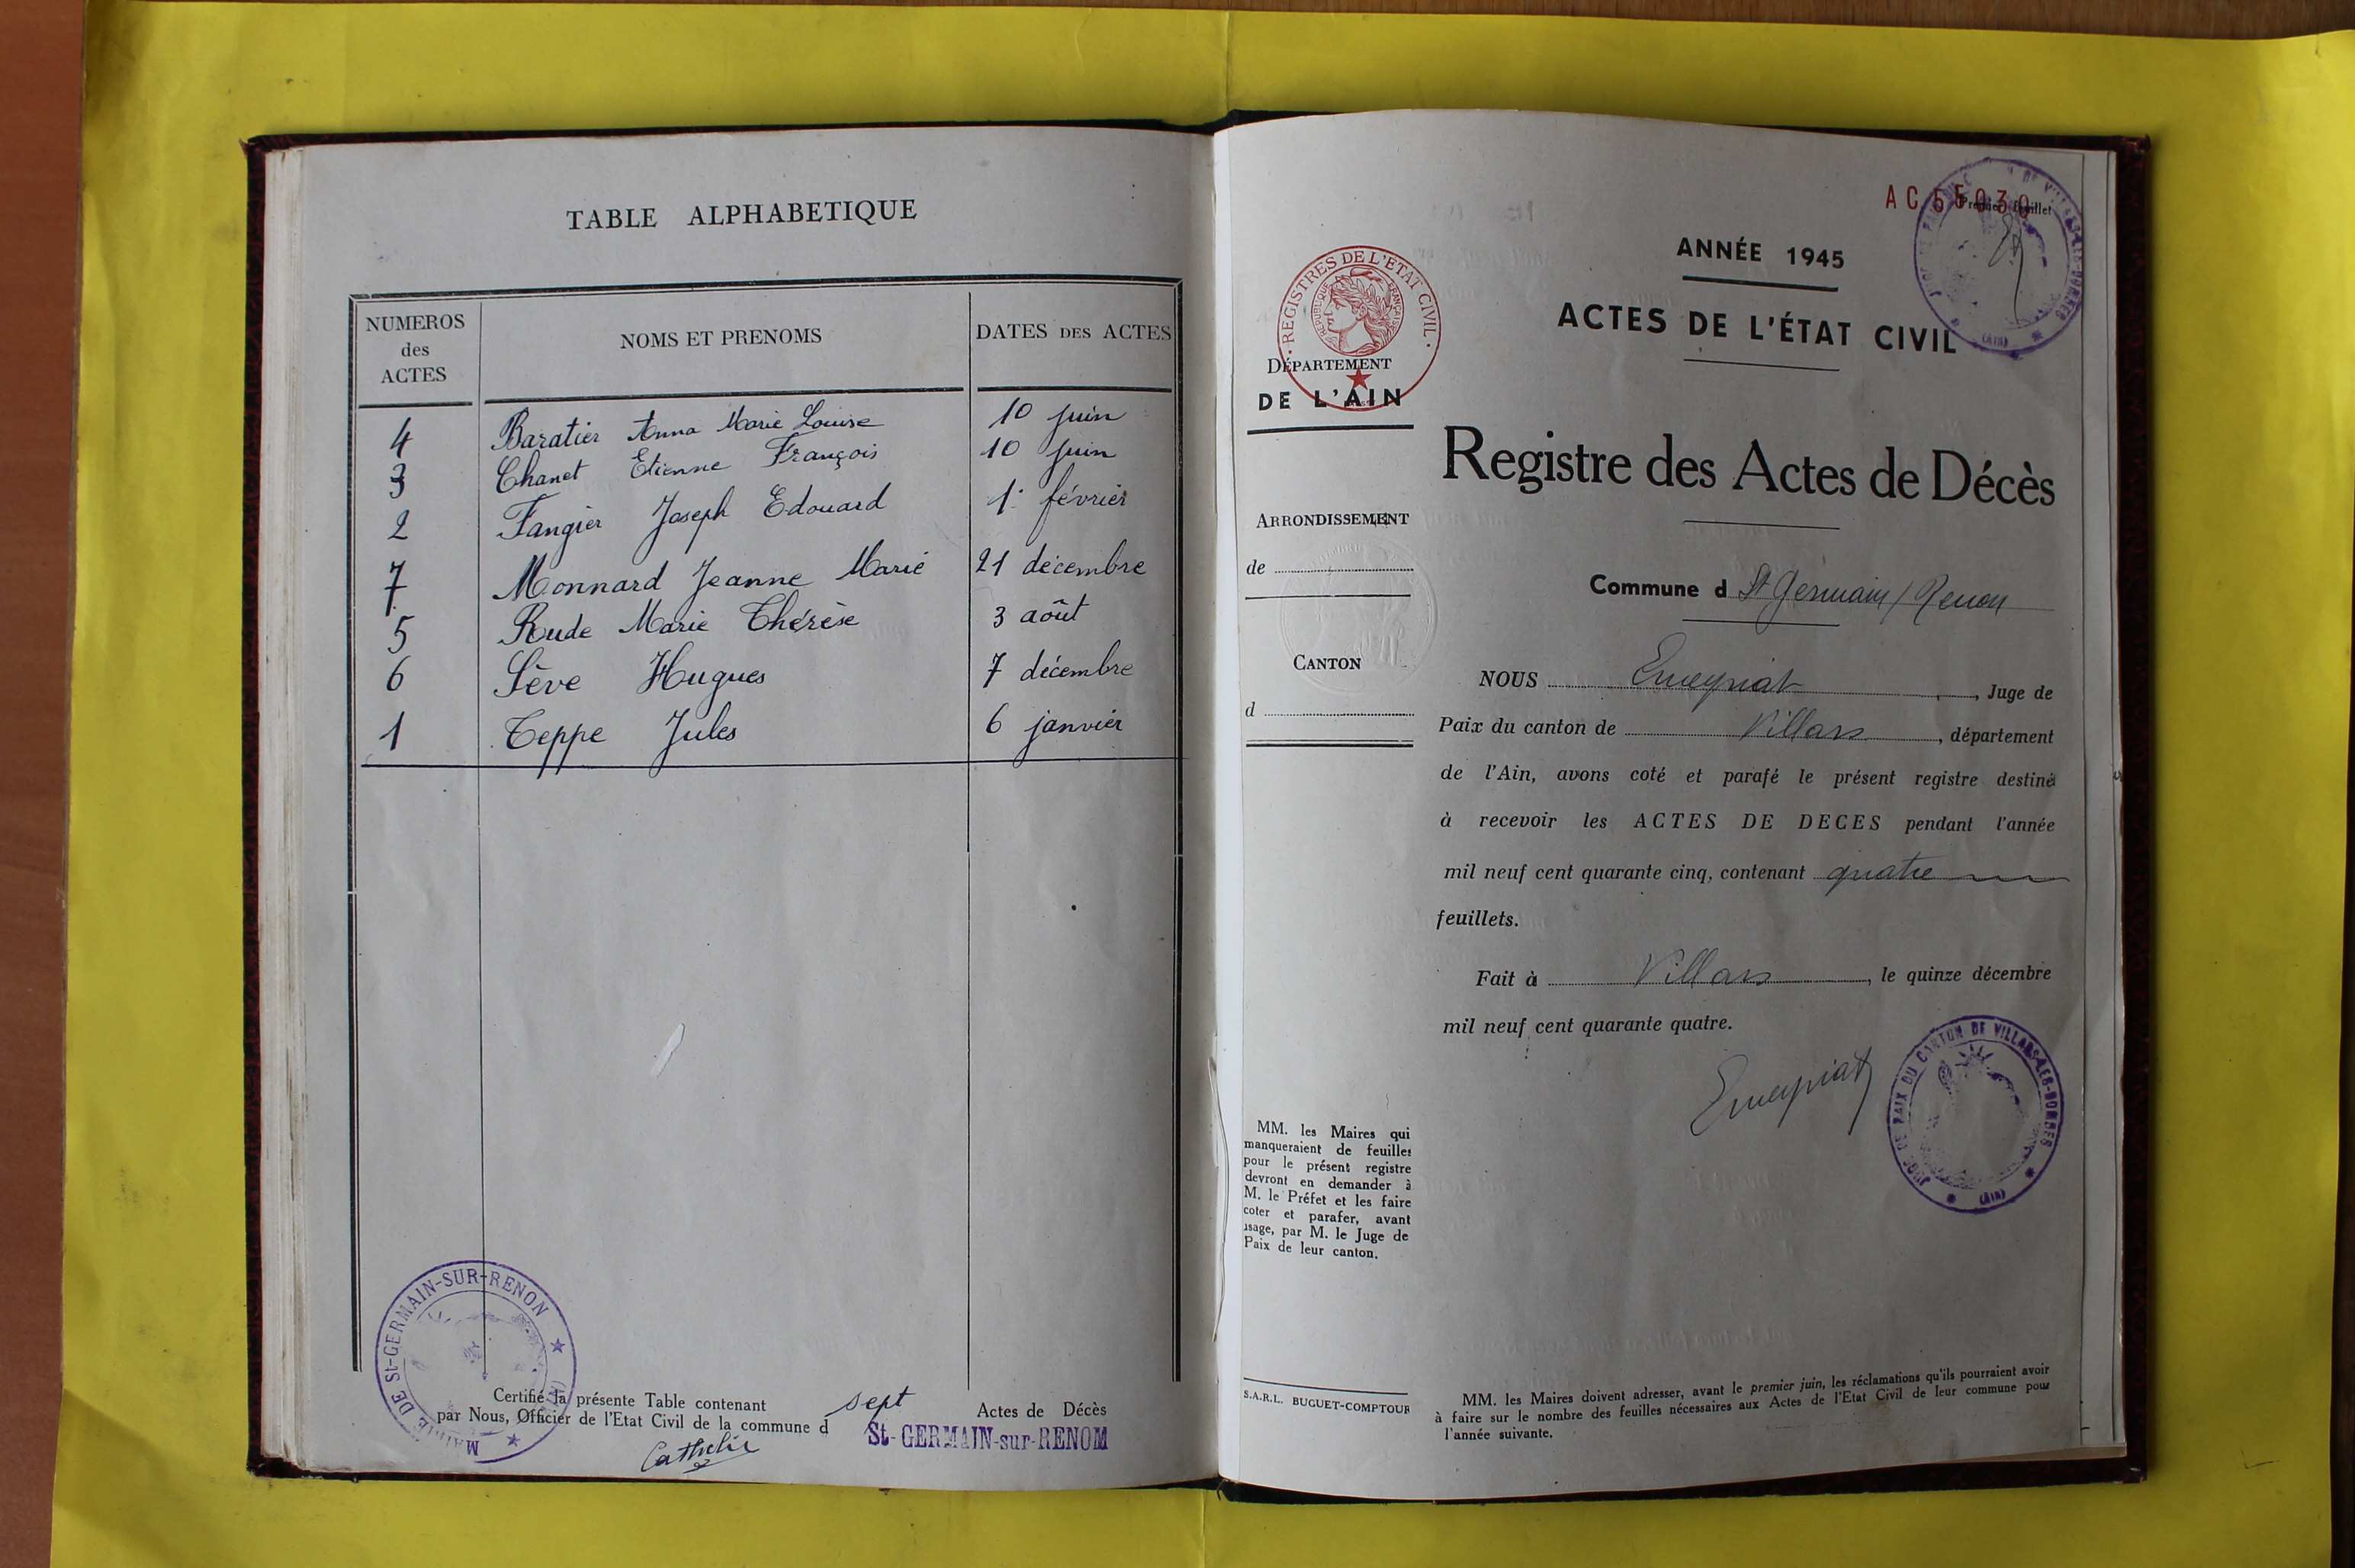 TABLE ALPHABETIQUE
NUMEROS
des
ACTES
NOMS ET PRENOMS
DATES DES ACTES
4 Baratier Anna Marie Louise 10 juin
3 Chanet Etienne François 10 juin
2 Fangier Joseph Edouard 1er février
7 Monnard Jeanne Marie 21 décembre
5 Rude Marie Thérèse 3 août
6 Sève Hugues 7 décembre
1 Teppe Jules 6 janvier
MAIRIE DE St-GERMAIN-SUR-RENON
Certifié la présente Table contenant sept Actes de Décès
par Nous, Officier de l'Etat Civil de la commune d St-GERMAIN-sur-RENOM
AC 55030
Premier feuillet
REGISTRES DE L'ETAT CIVIL
REPUBLIQUE FRANÇAISE
DÉPARTEMENT
DE L'AIN
ARRONDISSEMENT
de
CANTON
d
MM. les Maires qui
manqueraient de feuilles
pour le présent registre
devront en demander à
M. le Préfet et les faire
coter et parafer, avant
usage, par M. le Juge de
Paix de leur canton.
S.A.R.L. BUGUET-COMPTOUR
ANNÉE 1945
ACTES DE L'ÉTAT CIVIL
Registre des Actes de Décès
Commune d St Germain / Renon
NOUS Emeyriat, Juge de
Paix du canton de Villars, département
de l'Ain, avons coté et parafé le présent registre destiné
à recevoir les ACTES DE DECES pendant l'année
mil neuf cent quarante cinq, contenant quatre
feuillets.
Fait à Villars, le quinze décembre
mil neuf cent quarante quatre.
Emeyriat
JUGE DE PAIX DU CANTON DE VILLARS-LES-DOMBES (AIN)
MM. les Maires doivent adresser, avant le premier juin, les réclamations qu'ils pourraient avoir
à faire sur le nombre des feuilles nécessaires aux Actes de l'Etat Civil de leur commune pour
l'année suivante.